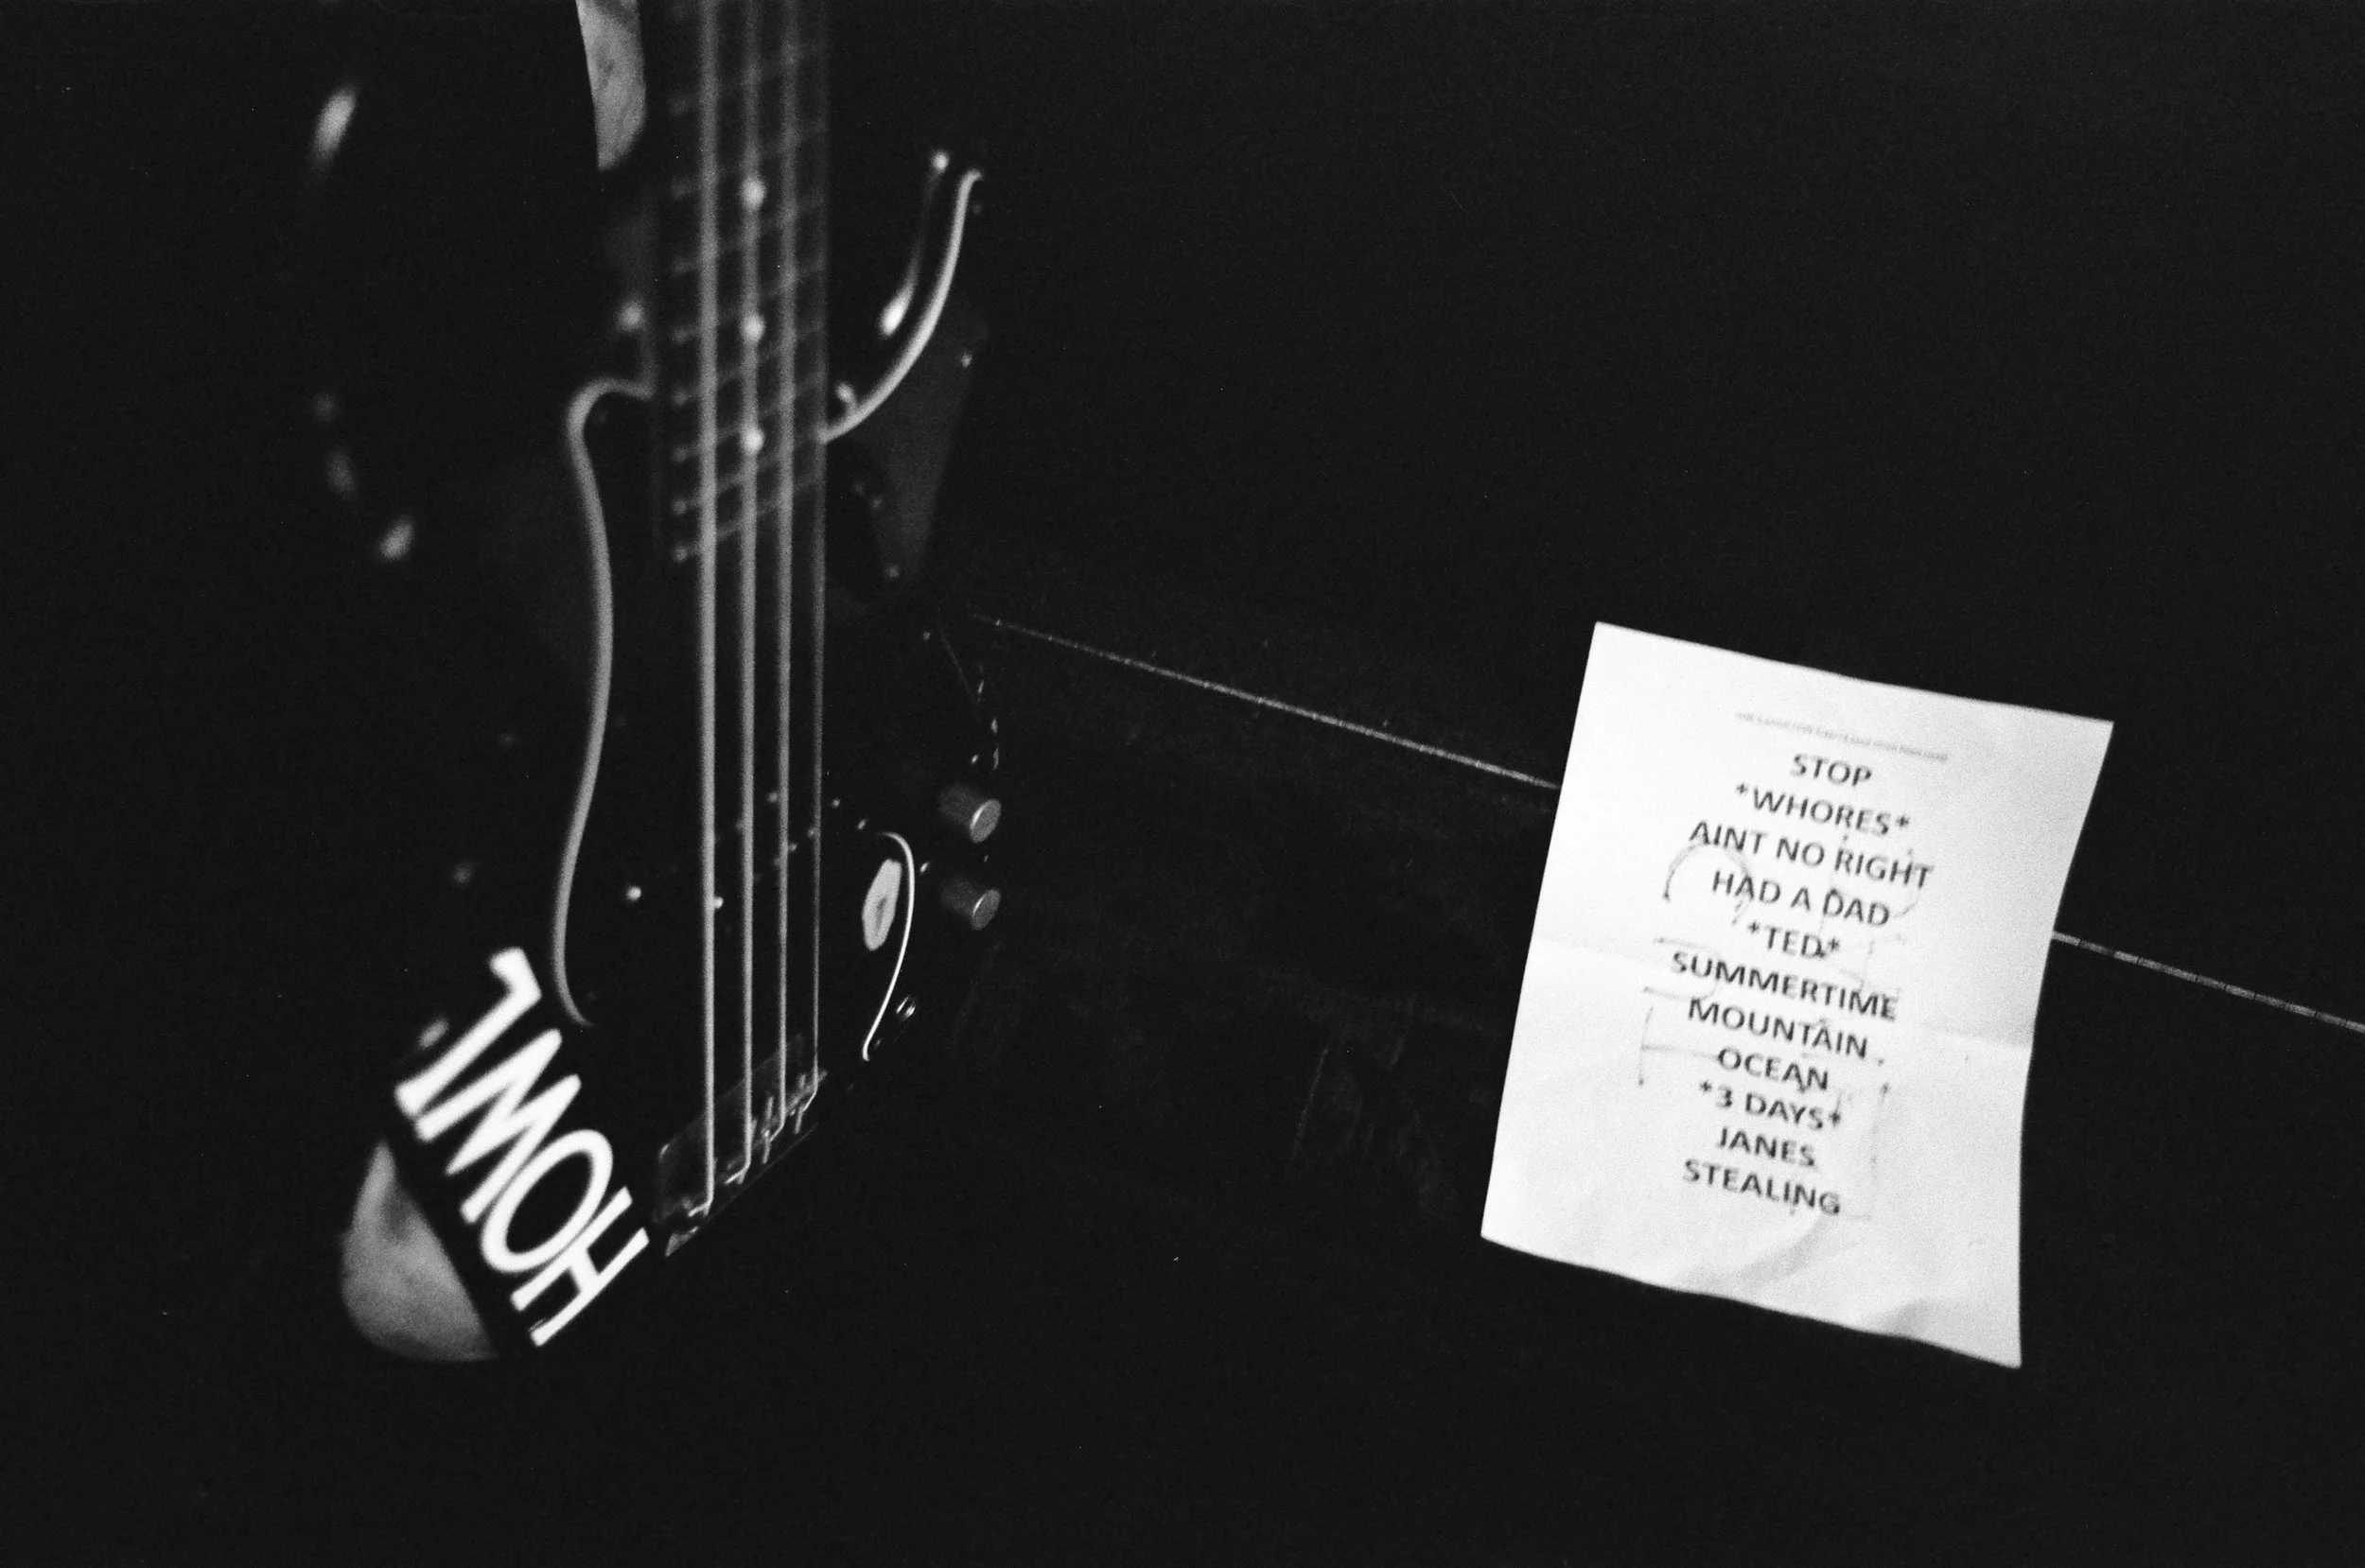 HOWL
STOP
*WHORES*
AINT NO RIGHT
HAD A DAD
*TED*
SUMMERTIME
MOUNTAIN
OCEAN
*3 DAYS*
JANES
STEALING